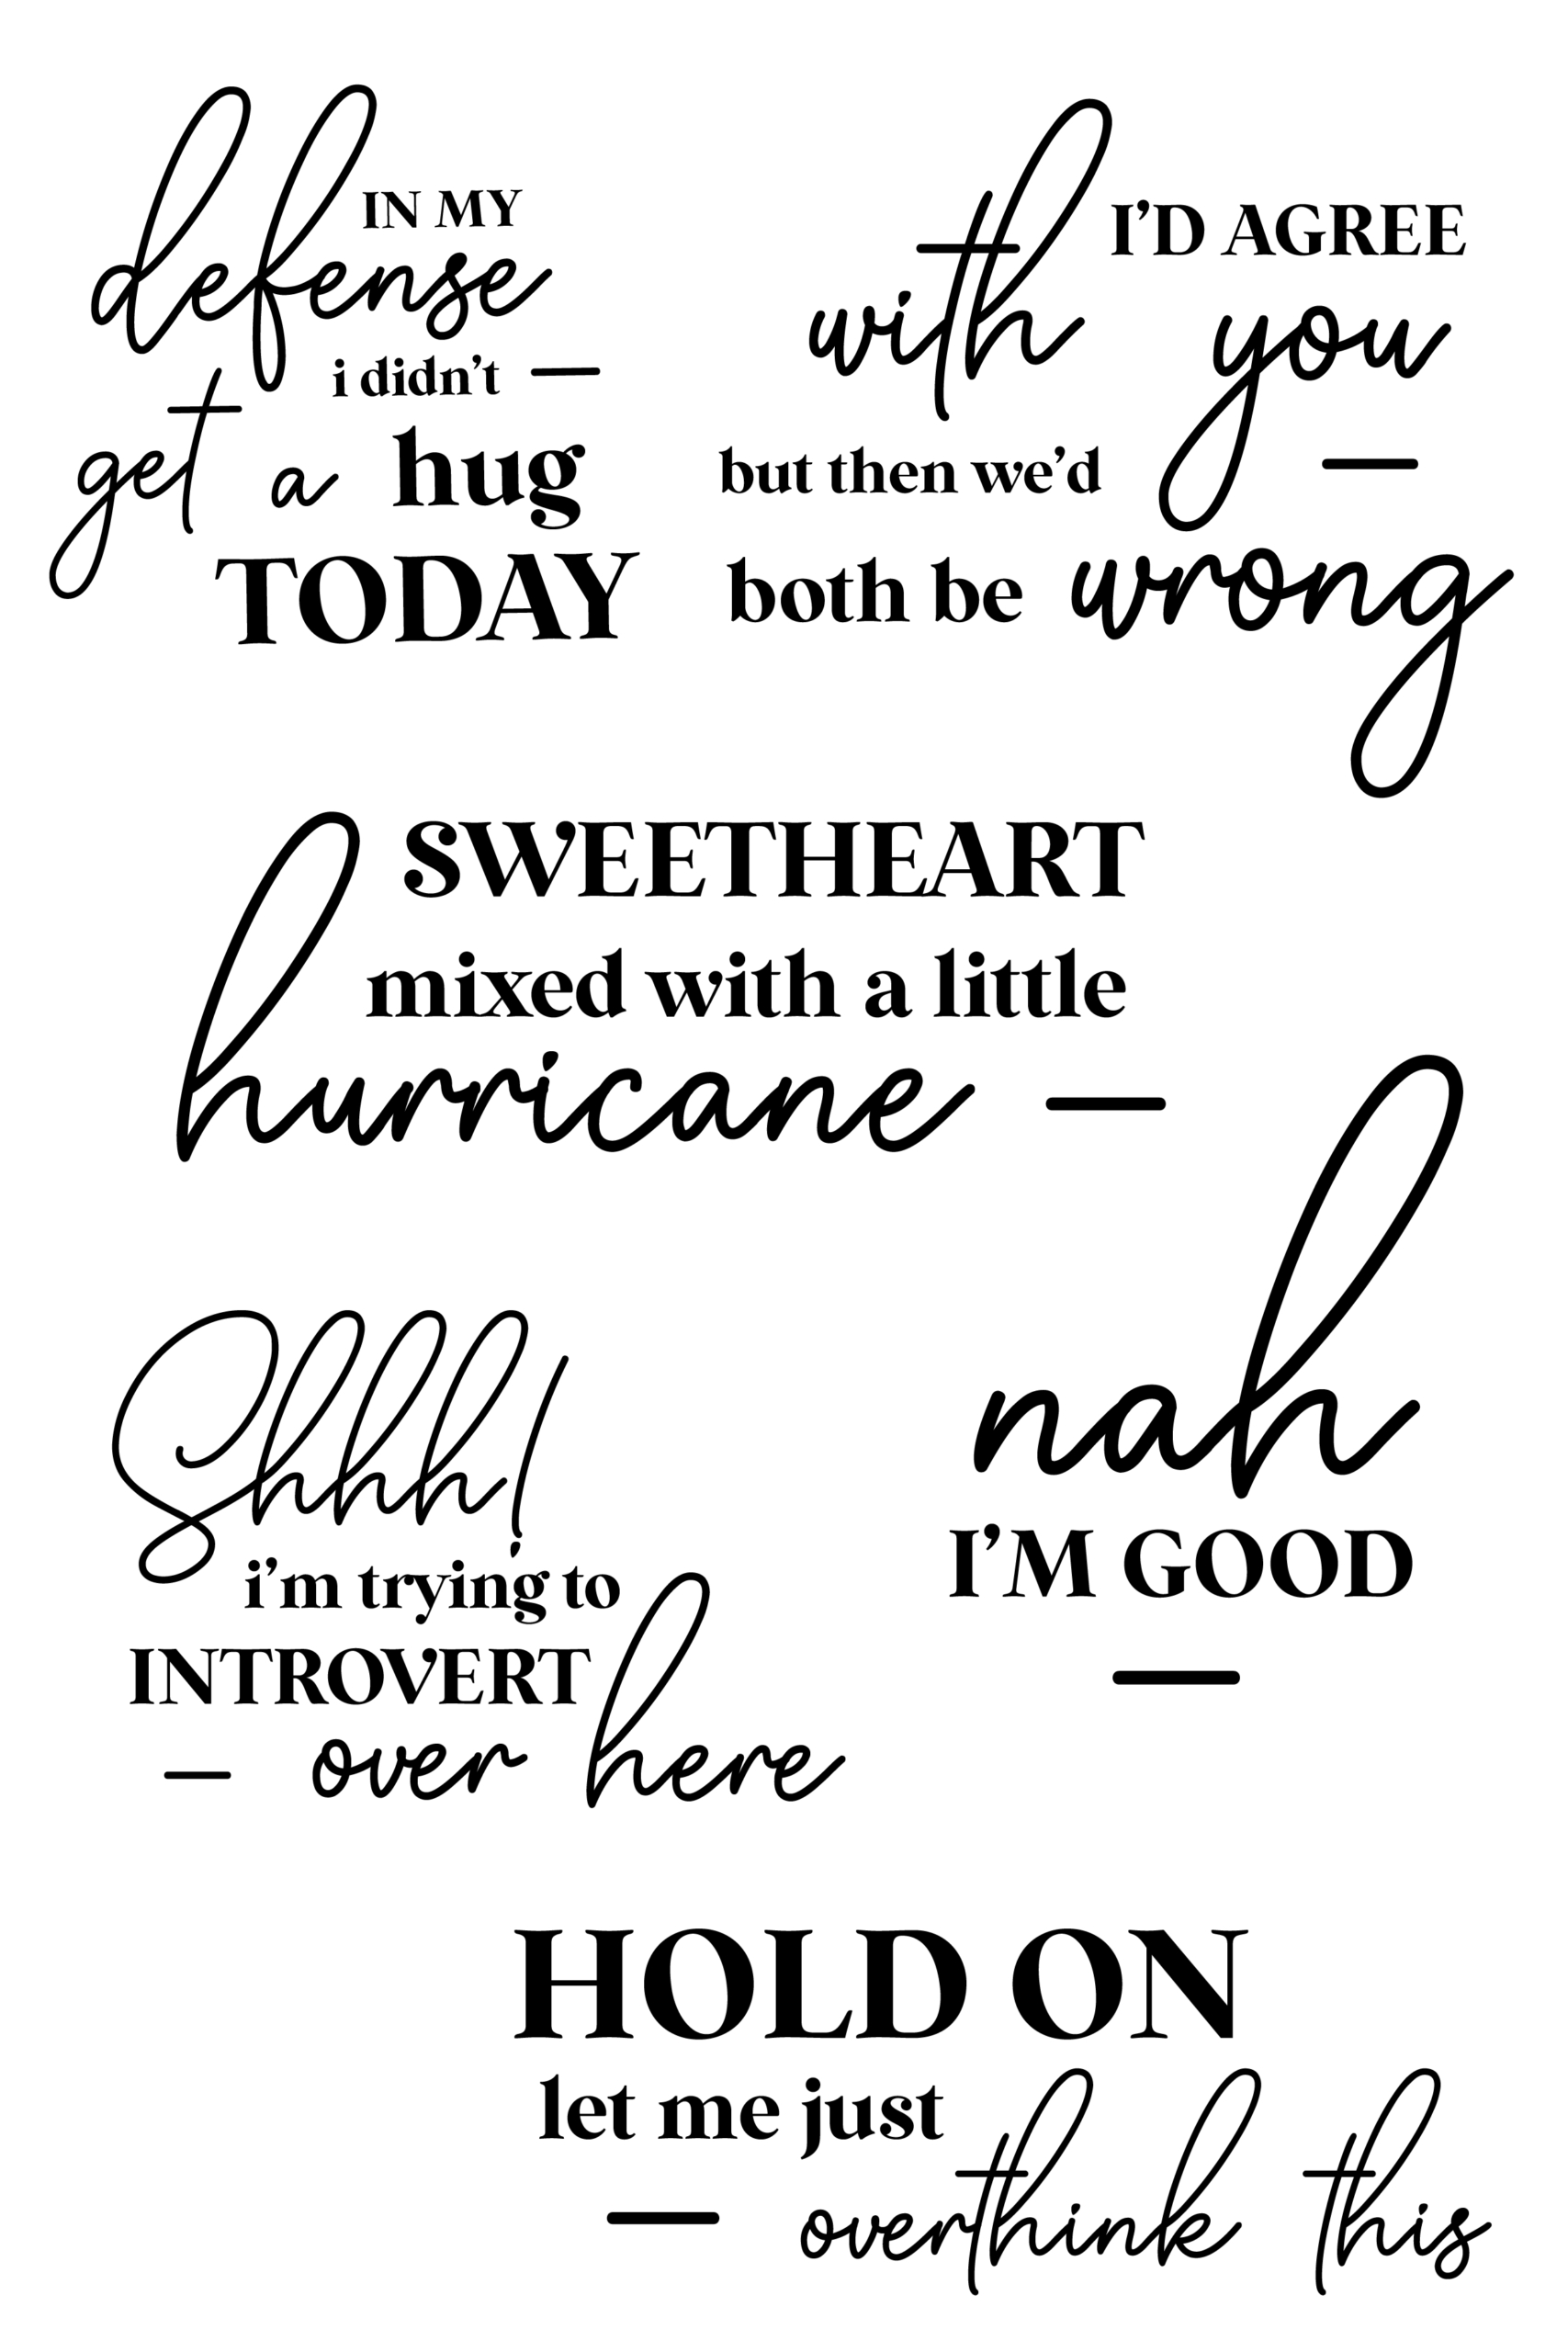 IN MY
defense
i didn't —
get a hug
TODAY
I'D AGREE
with you
but then we'd —
both be wrong
SWEETHEART
mixed with a little
hurricane —
Shhh!
i'm trying to
INTROVERT
— over here
nah
I'M GOOD
—
HOLD ON
let me just
— overthink this